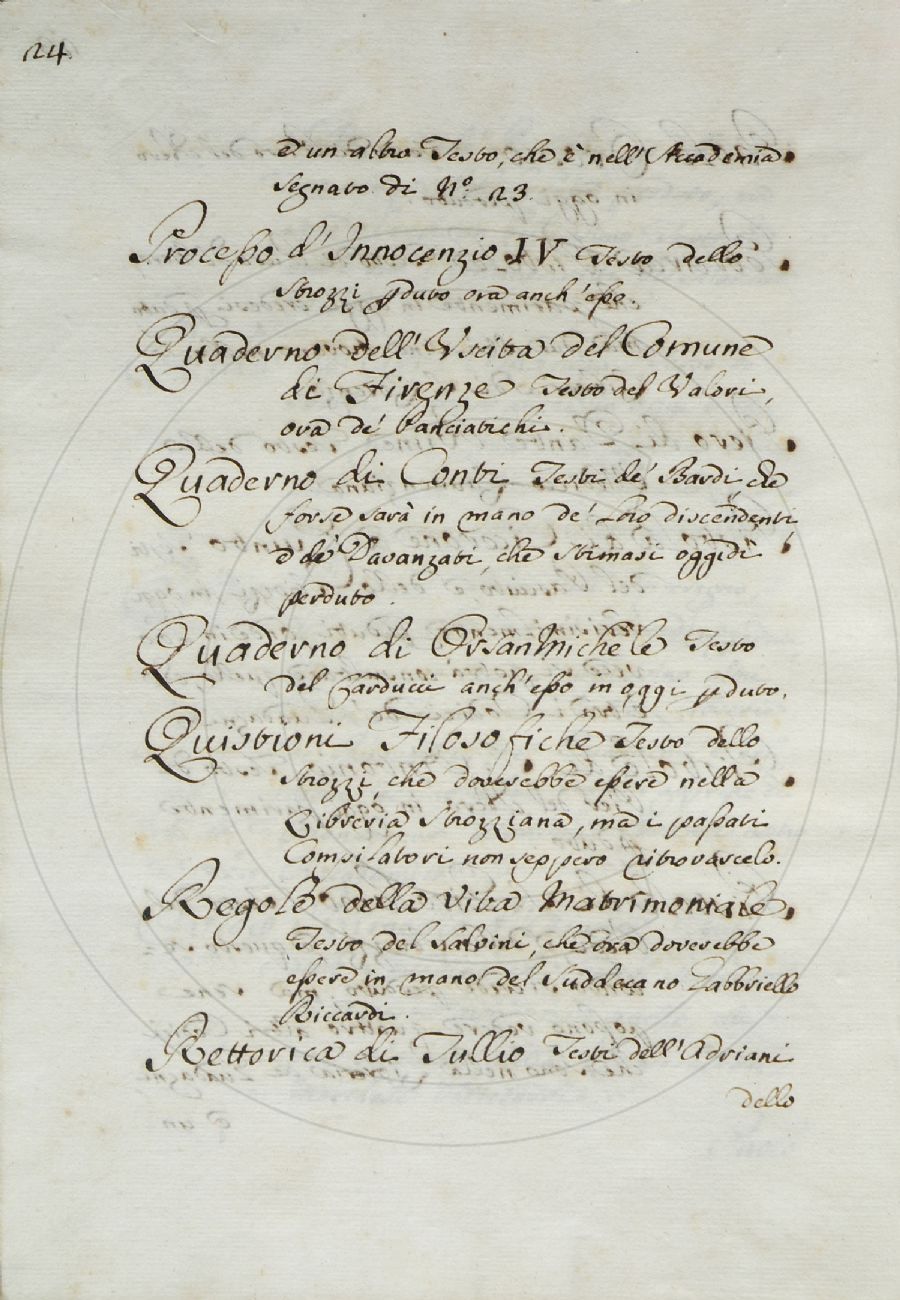 24
e un altro Testo, che è nell'Accademia
segnato di N.º 23.
Processo d'Innocenzio IV Testo dello
Strozzi pduto ora anch'esso.
Quaderno dell'Uscita del Comune
di Firenze Testo del Valori,
ora de' Panciatichi.
Quaderno di Conti Testi de' Bardi, che
forse sarà in mano de' Loro discendenti
e de' Davanzati, che stimasi oggidì
perduto.
Quaderno di Orsanmichele Testo
del Carducci anch'esso in oggi pduto.
Quistioni Filosofiche Testo dello
Strozzi, che doverebbe essere nella
Libreria Strozziana, ma i passati
Compilatori non seppero ritrovarcelo.
Regole della Vita Matrimoniale
Testo del Salvini, che ora doverebbe
essere in mano del Suddecano Gabbriello
Riccardi.
Rettorica di Tullio Testi dell'Adriani
dello